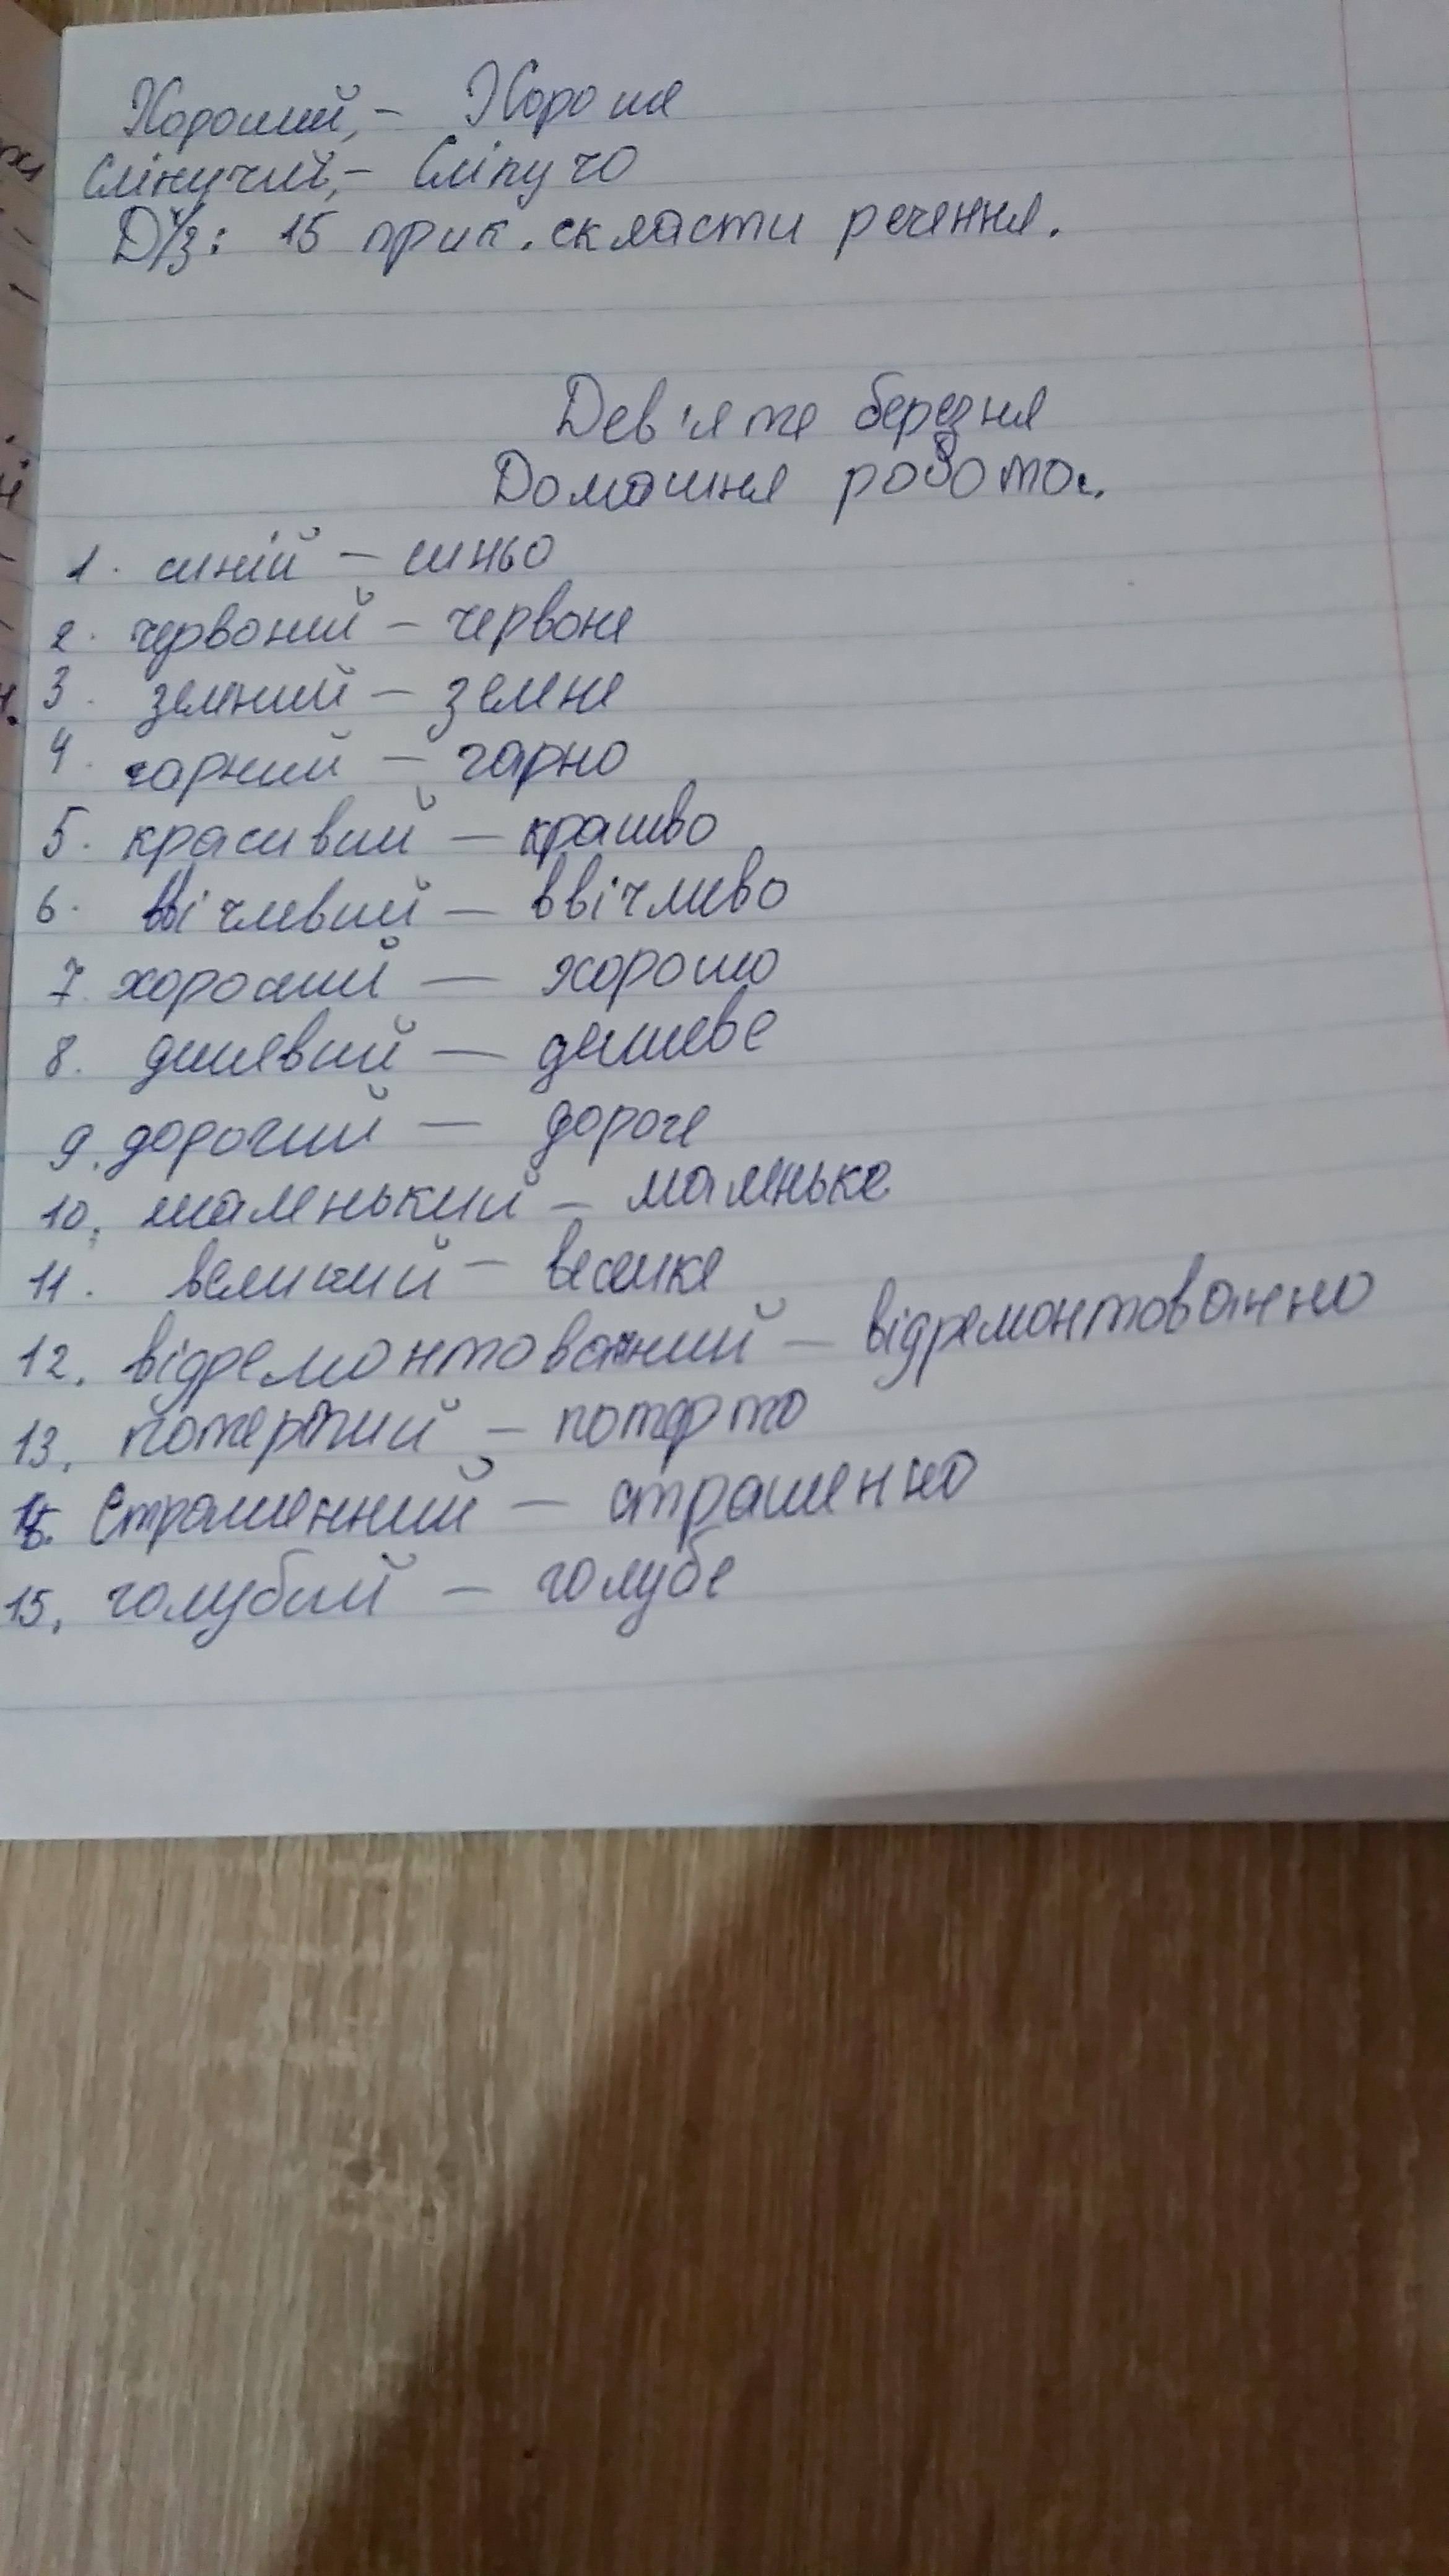 Хороший, – Хороше
Сліпучий, – Сліпучо
Д/з: 15 прик. скласти речення.
Дев'яте березня
Домашня робота.
1. синій – синьо
2. червоний – червоне
3. земний – земне
4. гарний – гарно
5. красивий – красиво
6. ввічливий – ввічливо
7. хороший – хорошо
8. дешевий – дешеве
9. дорогий – дороге
10. маленький – маленьке
11. великий – велике
12. відремонтований – відремонтованно
13. потертий – потерто
14. Страшенний – страшенно
15. голубий – голубе